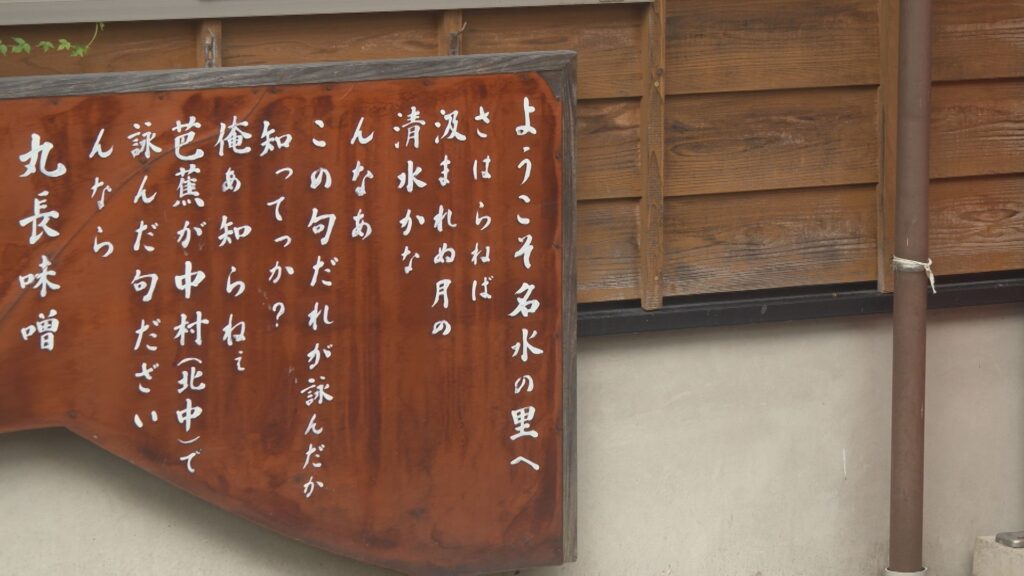 ようこそ名水の里へ
さはらねば
汲まれぬ月の
清水かな
んなあ
この句だれが詠んだか
知ってっか?
俺ぁ知らねぇ
芭蕉が中村(北中)で
詠んだ句だざい
んなら
丸長味噌